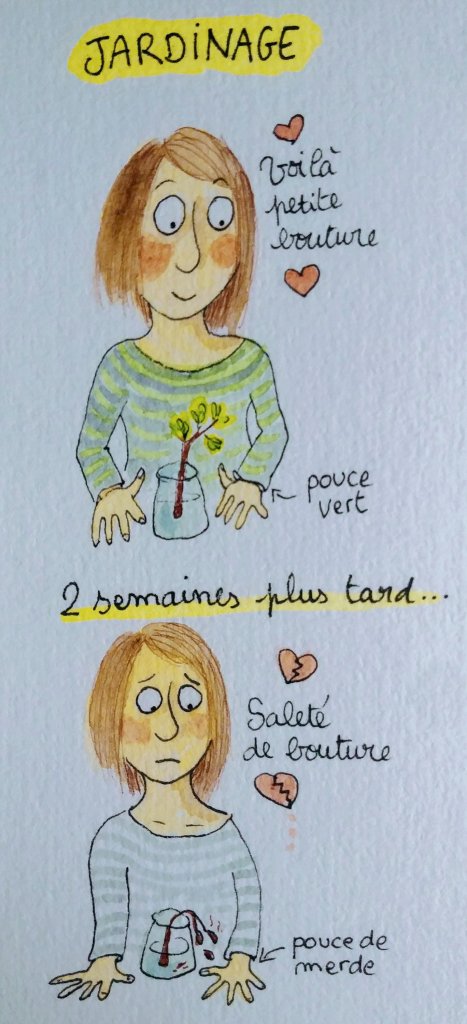 JARDINAGE
Voilà
petite
bouture
pouce
vert
2 semaines plus tard...
Saleté
de bouture
pouce de
merde